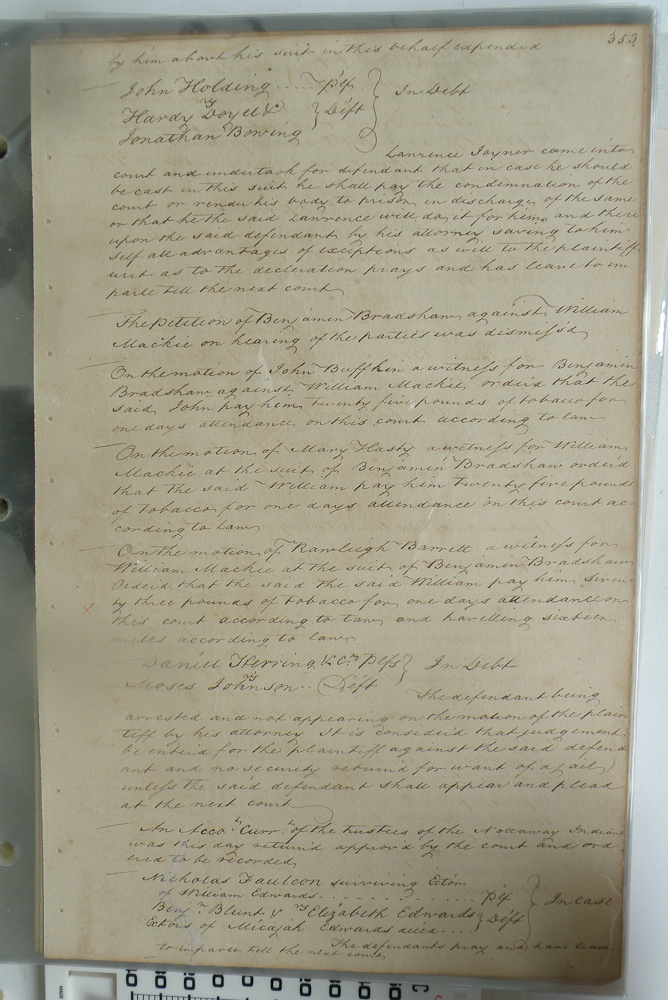 353
by him about his suit in this behalf expended
John Holding ..... Plf } In Debt
vs
Hardy Doyel &
Jonathan Bowing } Deft
Lawrence Joyner came into
court and undertook for defendant that in case he should
be cast in this suit he shall pay the condemnation of the
court or render his body to prison in discharge of the same
or that he the said Lawrence will do it for him, and there
upon the said defendant by his attorney saving to him
self all advantages of exceptions as will to the plaintiffs
writ as to the declaration prays and has leave to im
parle till the next court
The Petition of Benjamin Bradshaw against William
Mackie on hearing of the parties was dismiss'd
On the motion of John Buffkin a witness for Benjamin
Bradshaw against William Mackie order'd that the
said John pay him twenty five pounds of tobacco for
one days attendance on this court according to law
On the motion of Mary Hasty a witness for William
Mackie at the suit of Benjamin Bradshaw order'd
that the said William pay him twenty five pounds
of tobacco for one days attendance on this court ac
cording to law
On the motion of Rawleigh Barrett a witness for
William Mackie at the suit of Benjamin Bradshaw
Order'd that the said the said William pay him seven
ty three pounds of tobacco for one days attendance on
this court according to law and travelling sixteen
miles according to law
Daniel Herring & Co. Plfs } In Debt
vs
Moses Johnson .. Deft
The defendant being
arrested and not appearing on the motion of the plain
tiff by his attorney It is consider'd that judgement
be enter'd for the plaintiff against the said defend
ant and no security return'd for want of a jail
unless the said defendant shall appear and plead
at the next court
An Acco.t Curr.t of the trustees of the Nottaway Indians
was this day return'd approv'd by the court and ord
ered to be recorded
Nicholas Faulcon surviving Ector
of William Edwards .......... Plf } In case
vs
Benj.n Blunt & Elizabeth Edwards } Deft
Ectors of Micajah Edwards deced ....
The defendants pray and have leave
to imparle till the next court